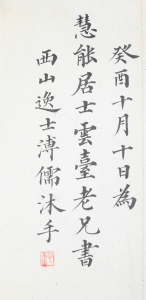 癸酉十月十日為
慧能居士雲臺老兄書
西山逸士溥儒沐手